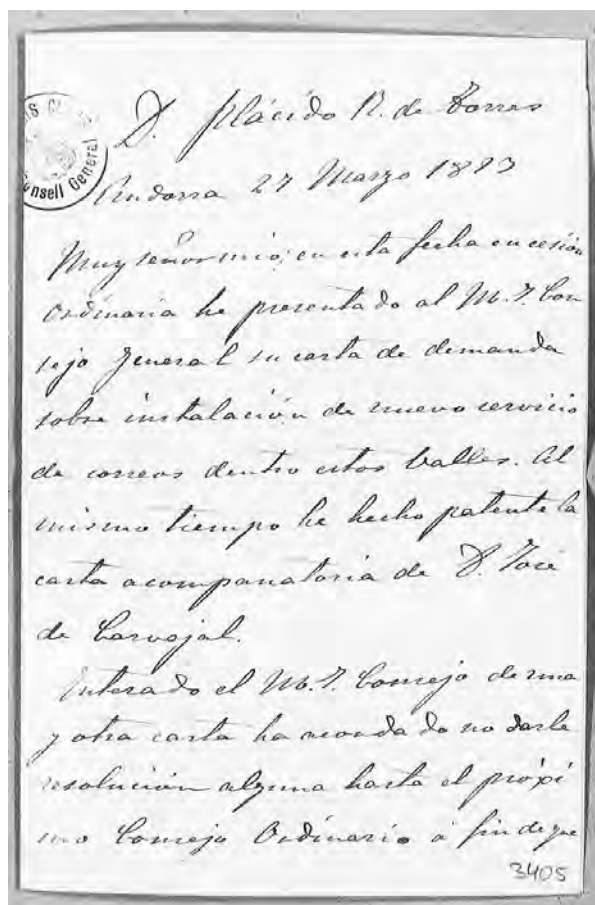 D. Plácido R. de Torres
Andorra 27 Marzo 1893
Muy señor mio; en esta fecha en cesión
Ordinaria he presentado al M. I. Con
sejo General su carta de demanda
sobre instalación de nuevo servicio
de correos dentro estos Valles. Al
mismo tiempo he hecho patente la
carta acompanatoria de D. José
de Carvajal.
Enterado el M. I. Consejo de una
y otra carta ha acordado no darle
resolución alguna hasta el próxi
mo Consejo Ordinario á fin de que
3405
nsell General